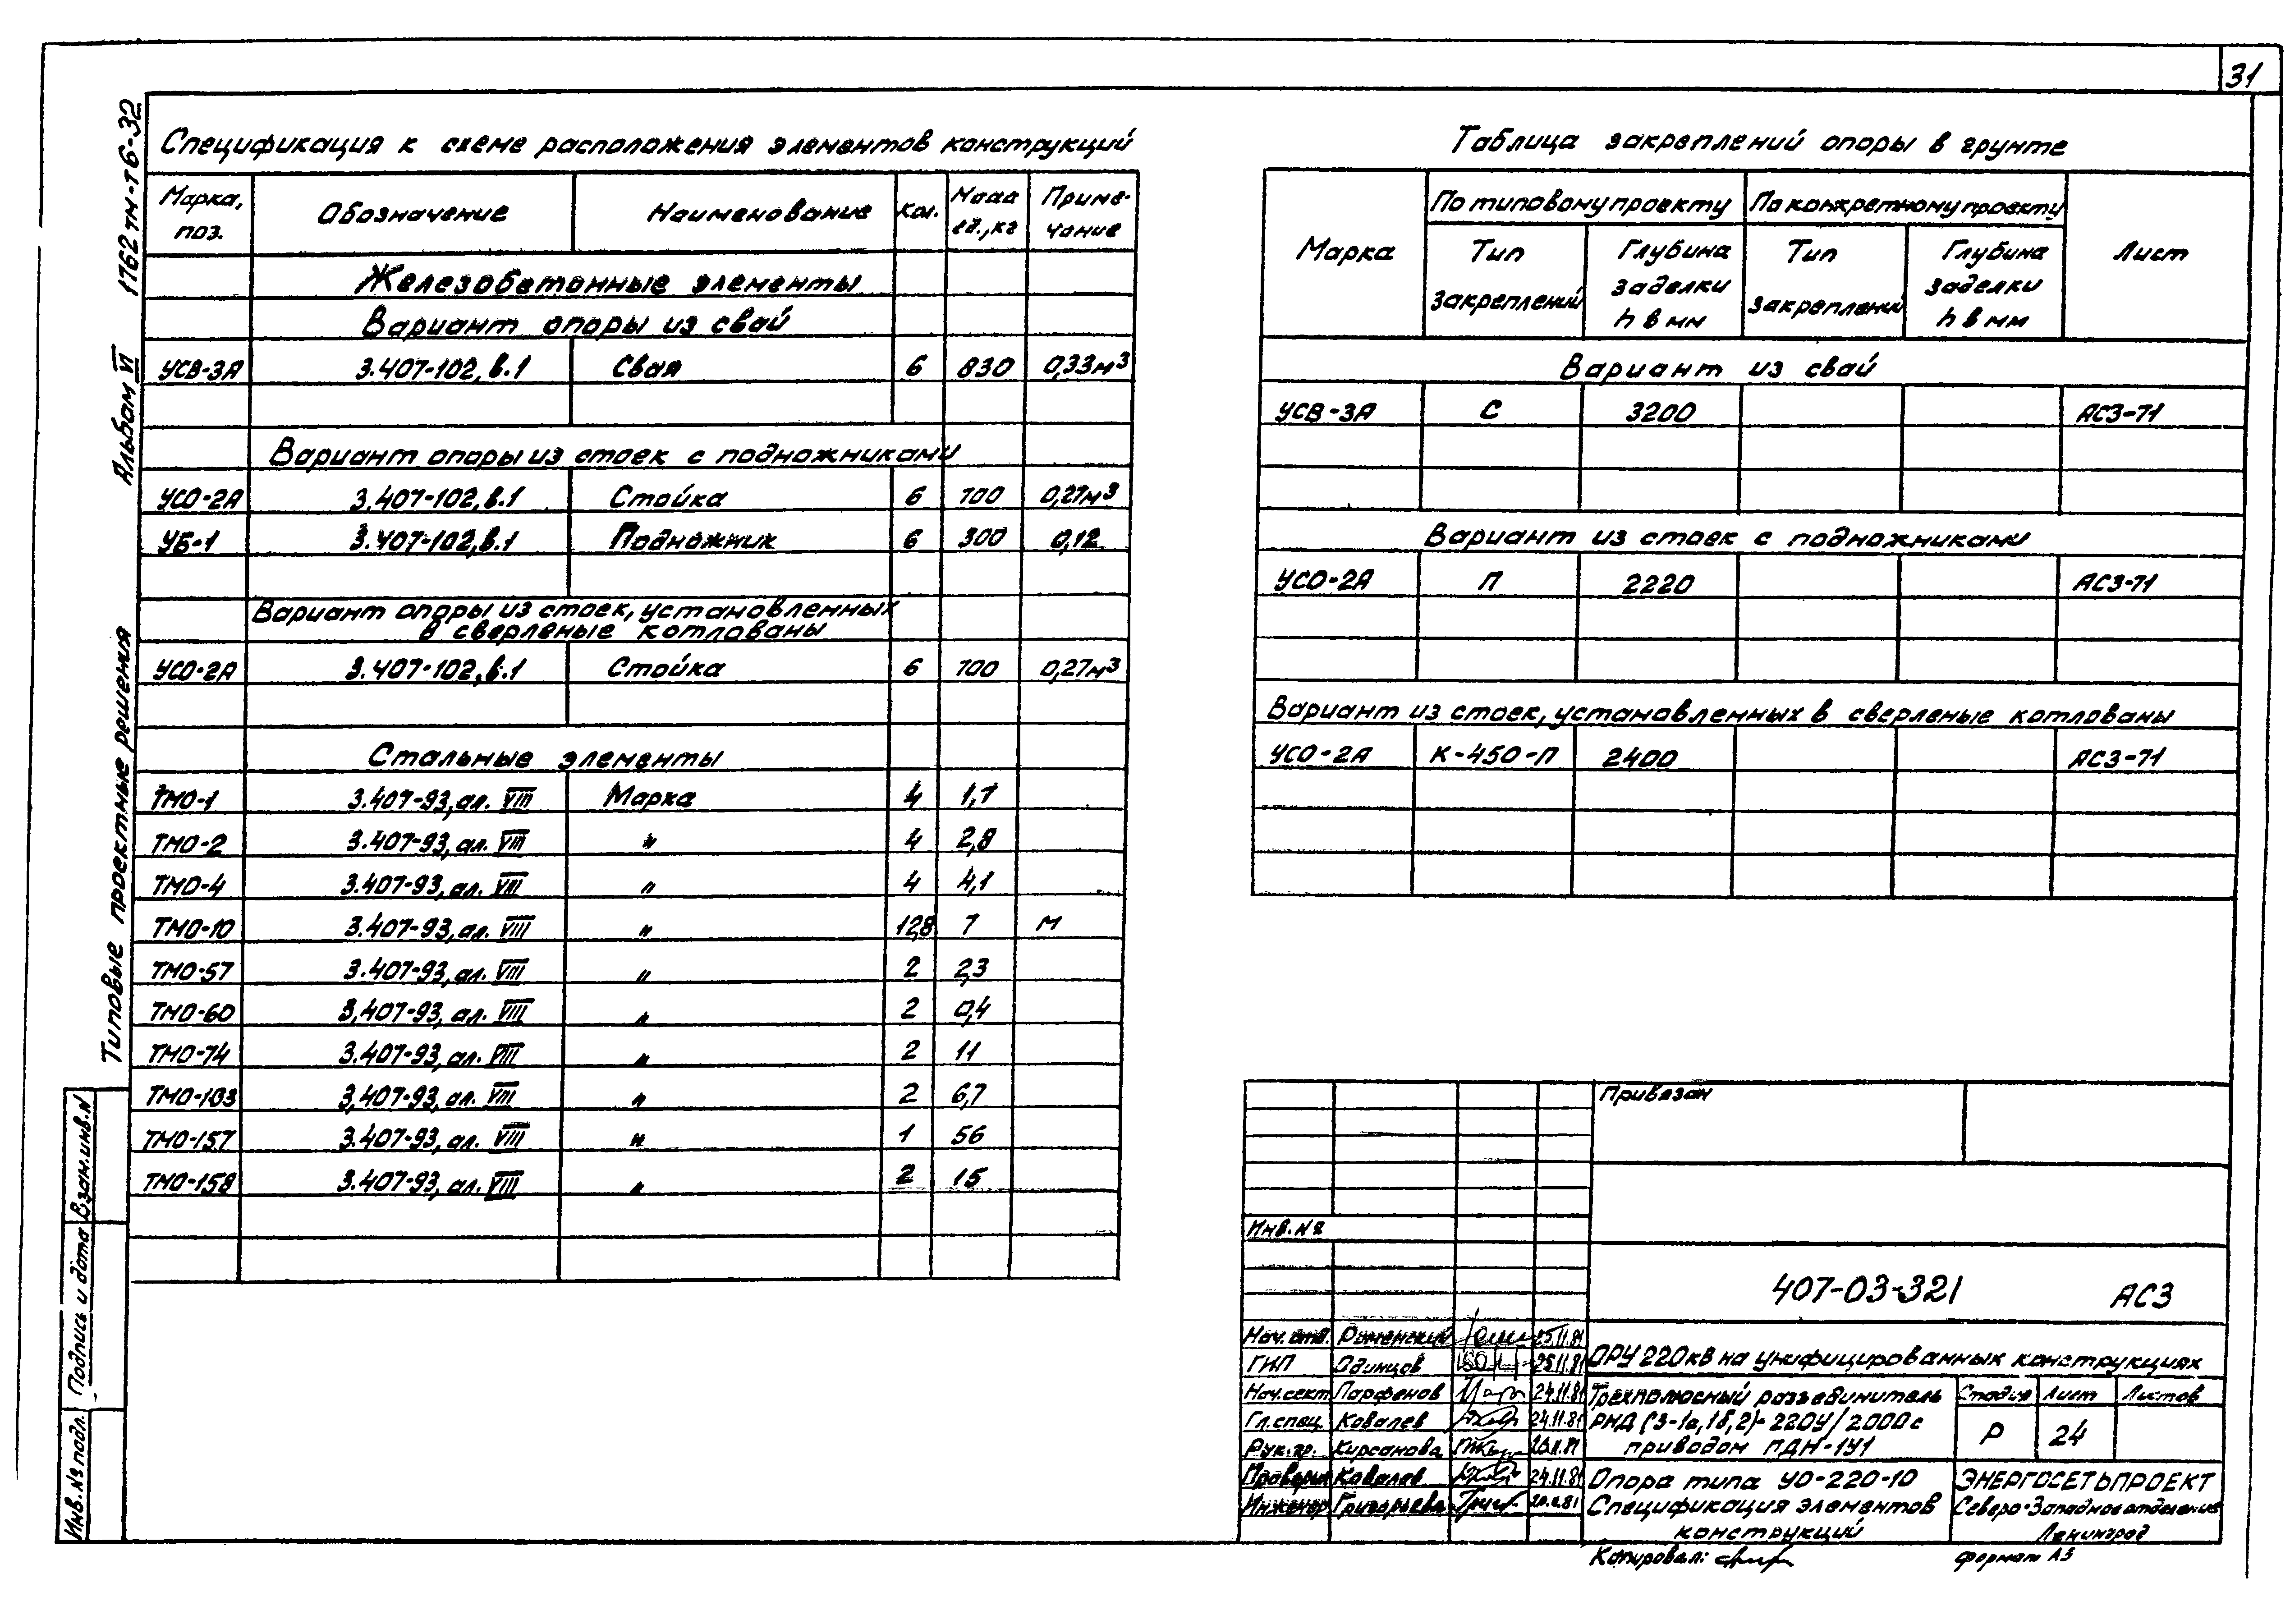 31
1762тм-т6-32
Альбом VI
Типовые проектные решения
Взам.инв.N
Подпись и дата
Инв.№ подл.
Спецификация к схеме расположения элементов конструкций
Марка, поз. Обозначение Наименование Кол. Масса ед.,кг Приме-чание
Железобетонные элементы
Вариант опоры из свай
УСВ-3А 3.407-102, в.1 Свая 6 830 0,33м³
Вариант опоры из стоек с подножниками
УСО-2А 3.407-102, в.1 Стойка 6 700 0,27м³
УБ-1 3.407-102, в.1 Подножник 6 300 0,12
Вариант опоры из стоек, установленных
в сверленые котлованы
УСО-2А 3.407-102, в.1 Стойка 6 700 0,27м³
Стальные элементы
ТМО-1 3.407-93, ал. VIII Марка 4 1,7
ТМО-2 3.407-93, ал. VIII " 4 2,8
ТМО-4 3.407-93, ал. VIII " 4 4,1
ТМО-10 3.407-93, ал. VIII " 12,8 7 м
ТМО-57 3.407-93, ал. VIII " 2 2,3
ТМО-60 3.407-93, ал. VIII " 2 0,4
ТМО-74 3.407-93, ал. VIII " 2 11
ТМО-103 3.407-93, ал. VIII " 2 6,7
ТМО-157 3.407-93, ал. VIII " 1 56
ТМО-158 3.407-93, ал. VIII " 2 15
Таблица закреплений опоры в грунте
Марка По типовому проекту По конкретному проекту Лист
Тип закреплений Глубина заделки h в мм Тип закреплений Глубина заделки h в мм
Вариант из свай
УСВ-3А С 3200 АС3-71
Вариант из стоек с подножниками
УСО-2А П 2220 АС3-71
Вариант из стоек, установленных в сверленые котлованы
УСО-2А К-450-П 2400 АС3-71
Привязан
Инв.№
407-03-321 АС3
Нач. отд. Роменский 25.11.81
ГИП Одинцов 25.11.81
Нач.сект. Парфенов 24.11.81
Гл.спец. Ковалев 24.11.81
Рук.гр. Кирсанова
Проверил Ковалев 24.11.81
Инженер Григорьева
ОРУ 220кВ на унифицированных конструкциях
Трехполюсный разъединитель
РНД (З-1а, 1б, 2)-220У/2000 с
приводом ПДН-1У1
Стадия Лист Листов
Р 24
Опора типа УО-220-10
Спецификация элементов
конструкций
ЭНЕРГОСЕТЬПРОЕКТ
Северо-Западное отделение
Ленинград
Копировал:
формат А3